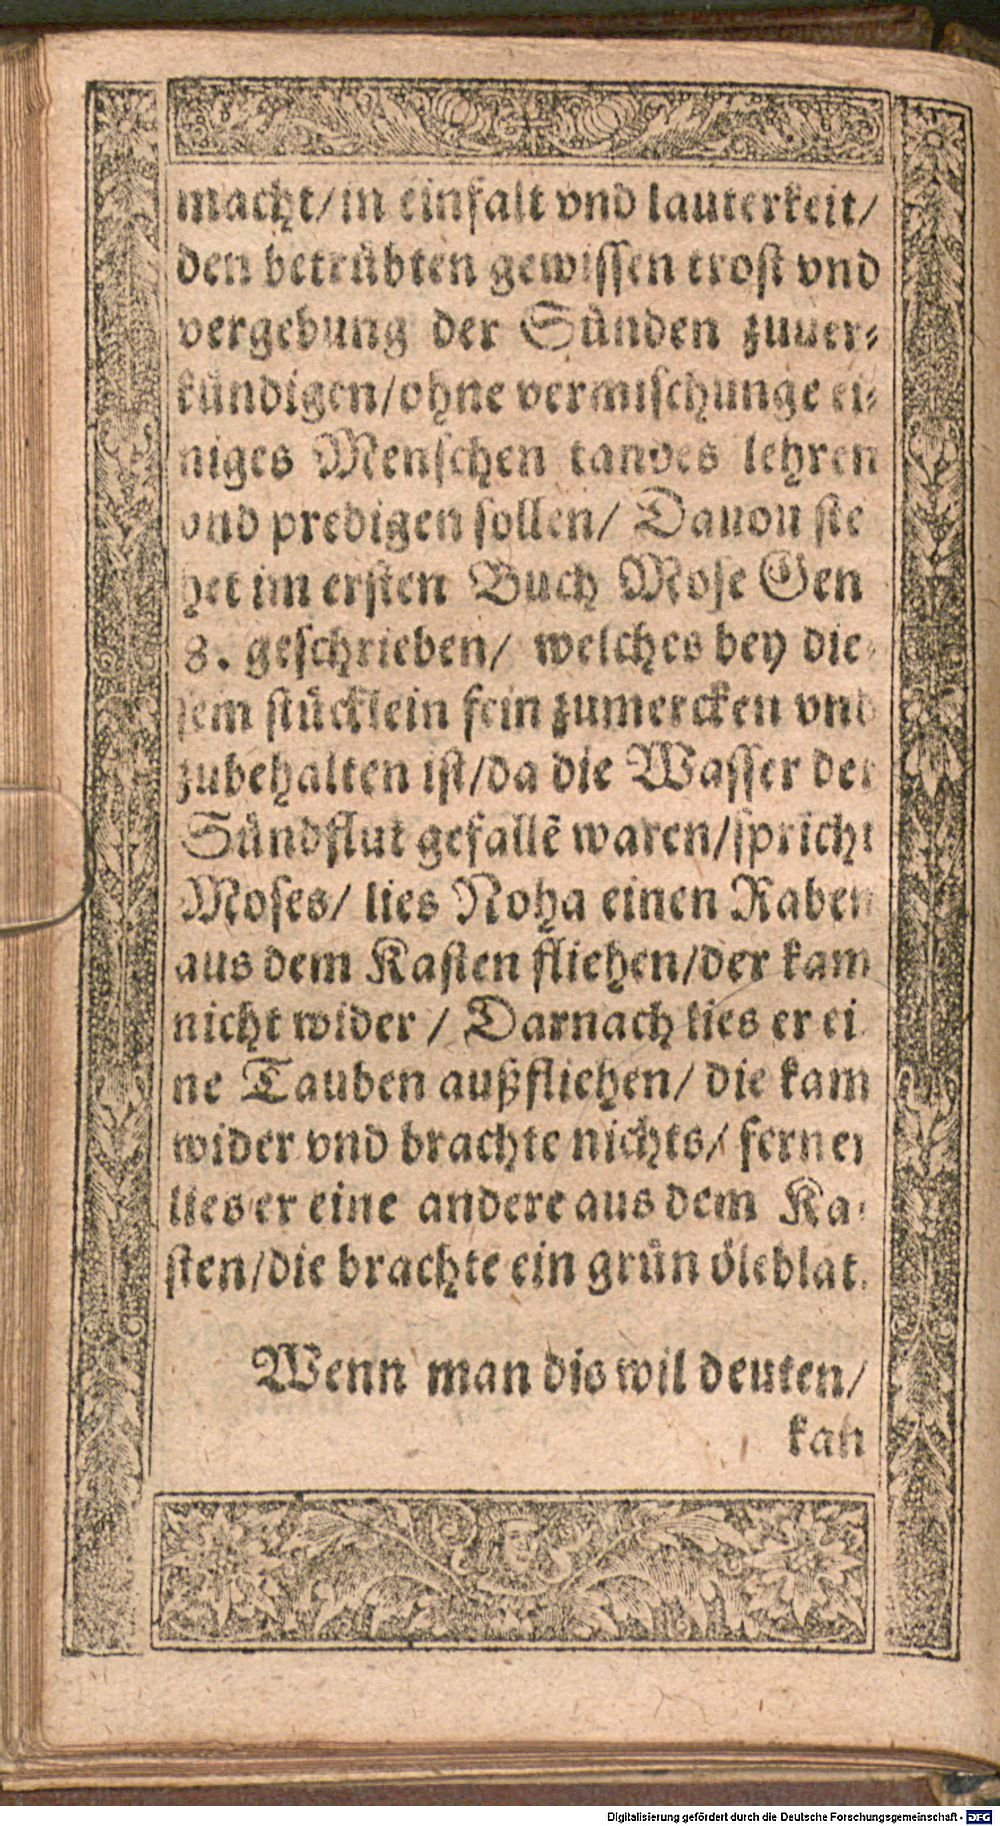 macht/in einfalt vnd lauterkeit/
den betrübten gewissen trost vnd
vergebung der Sünden zuuer⸗
kündigen/ohne vermischunge ei⸗
niges Menschen tandes lehren
vnd predigen sollen/ Dauon ste
het im ersten Buch Mose Gen
8. geschrieben/ welches bey die⸗
sem stücklein fein zumercken vnd
zubehalten ist/da die Wasser der
Sündflut gefallẽ waren/spricht
Moses/ lies Noha einen Raben
aus dem Kasten fliehen/der kam
nicht wider / Darnach lies er ei
ne Tauben außfliehen/ die kam
wider vnd brachte nichts/ ferner
lies er eine andere aus dem Ka⸗
sten/die brachte ein grün öleblat.
Wenn man dis wil deuten/
kan
Digitalisierung gefördert durch die Deutsche Forschungsgemeinschaft - DFG